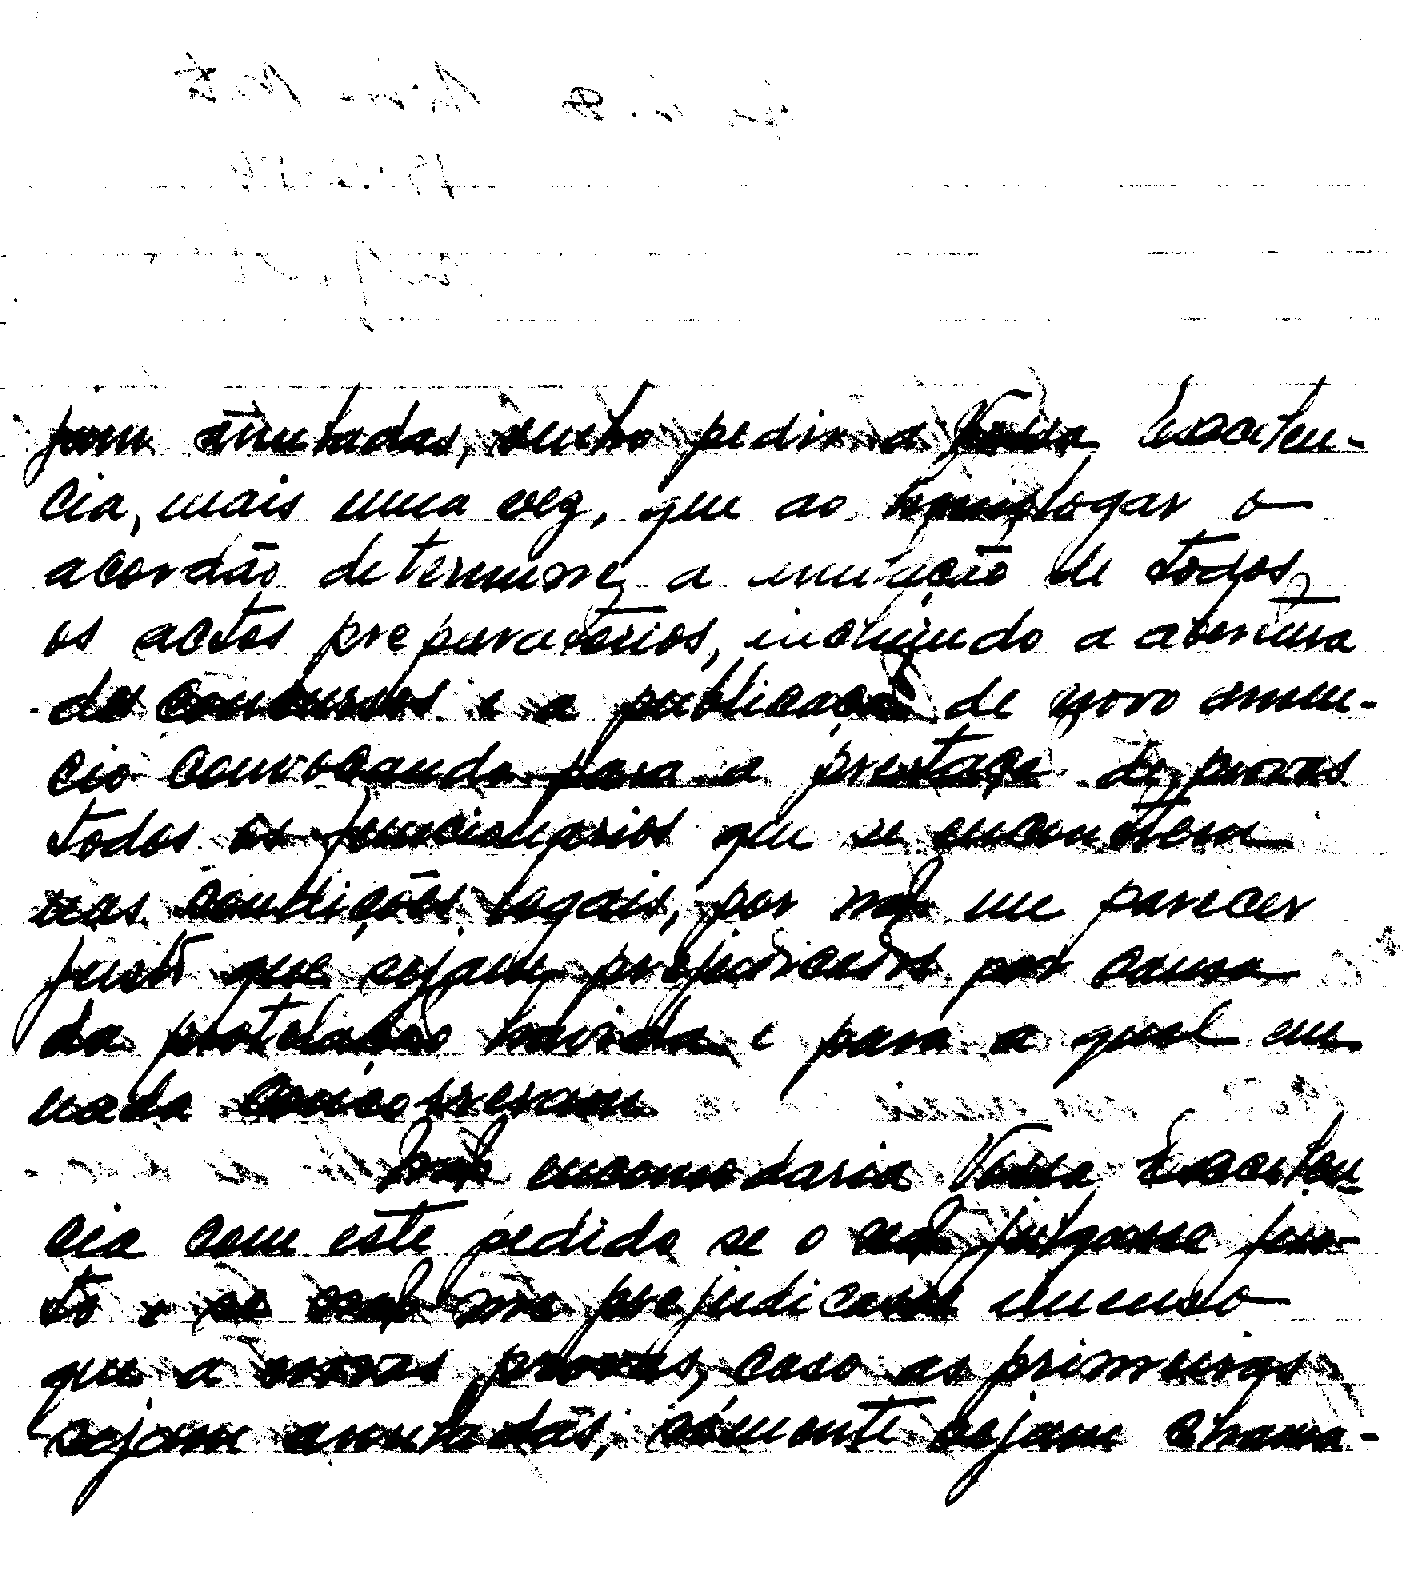 jam anuladas, venho pedir a Vossa Excelen-
cia, mais uma vez, que ao homologar o
acordão determine a anulação de todos
os actos preparatórios, incluindo a abertura
de concursos e a publicação de novo anun-
cio convocando para a prestação de provas
todos os funcionários que se encontrem
nas condições legais, por não me parecer
justo que sejam prejudicados por causa
da protelação havida e para a qual em
nada concorreram
Não encomodaria Vossa Excelen-
cia com este pedido se o não julgasse jus-
to e se não me prejudicasse imenso
que a novas provas, caso as primeiras
sejam anuladas, sómente sejam chama-